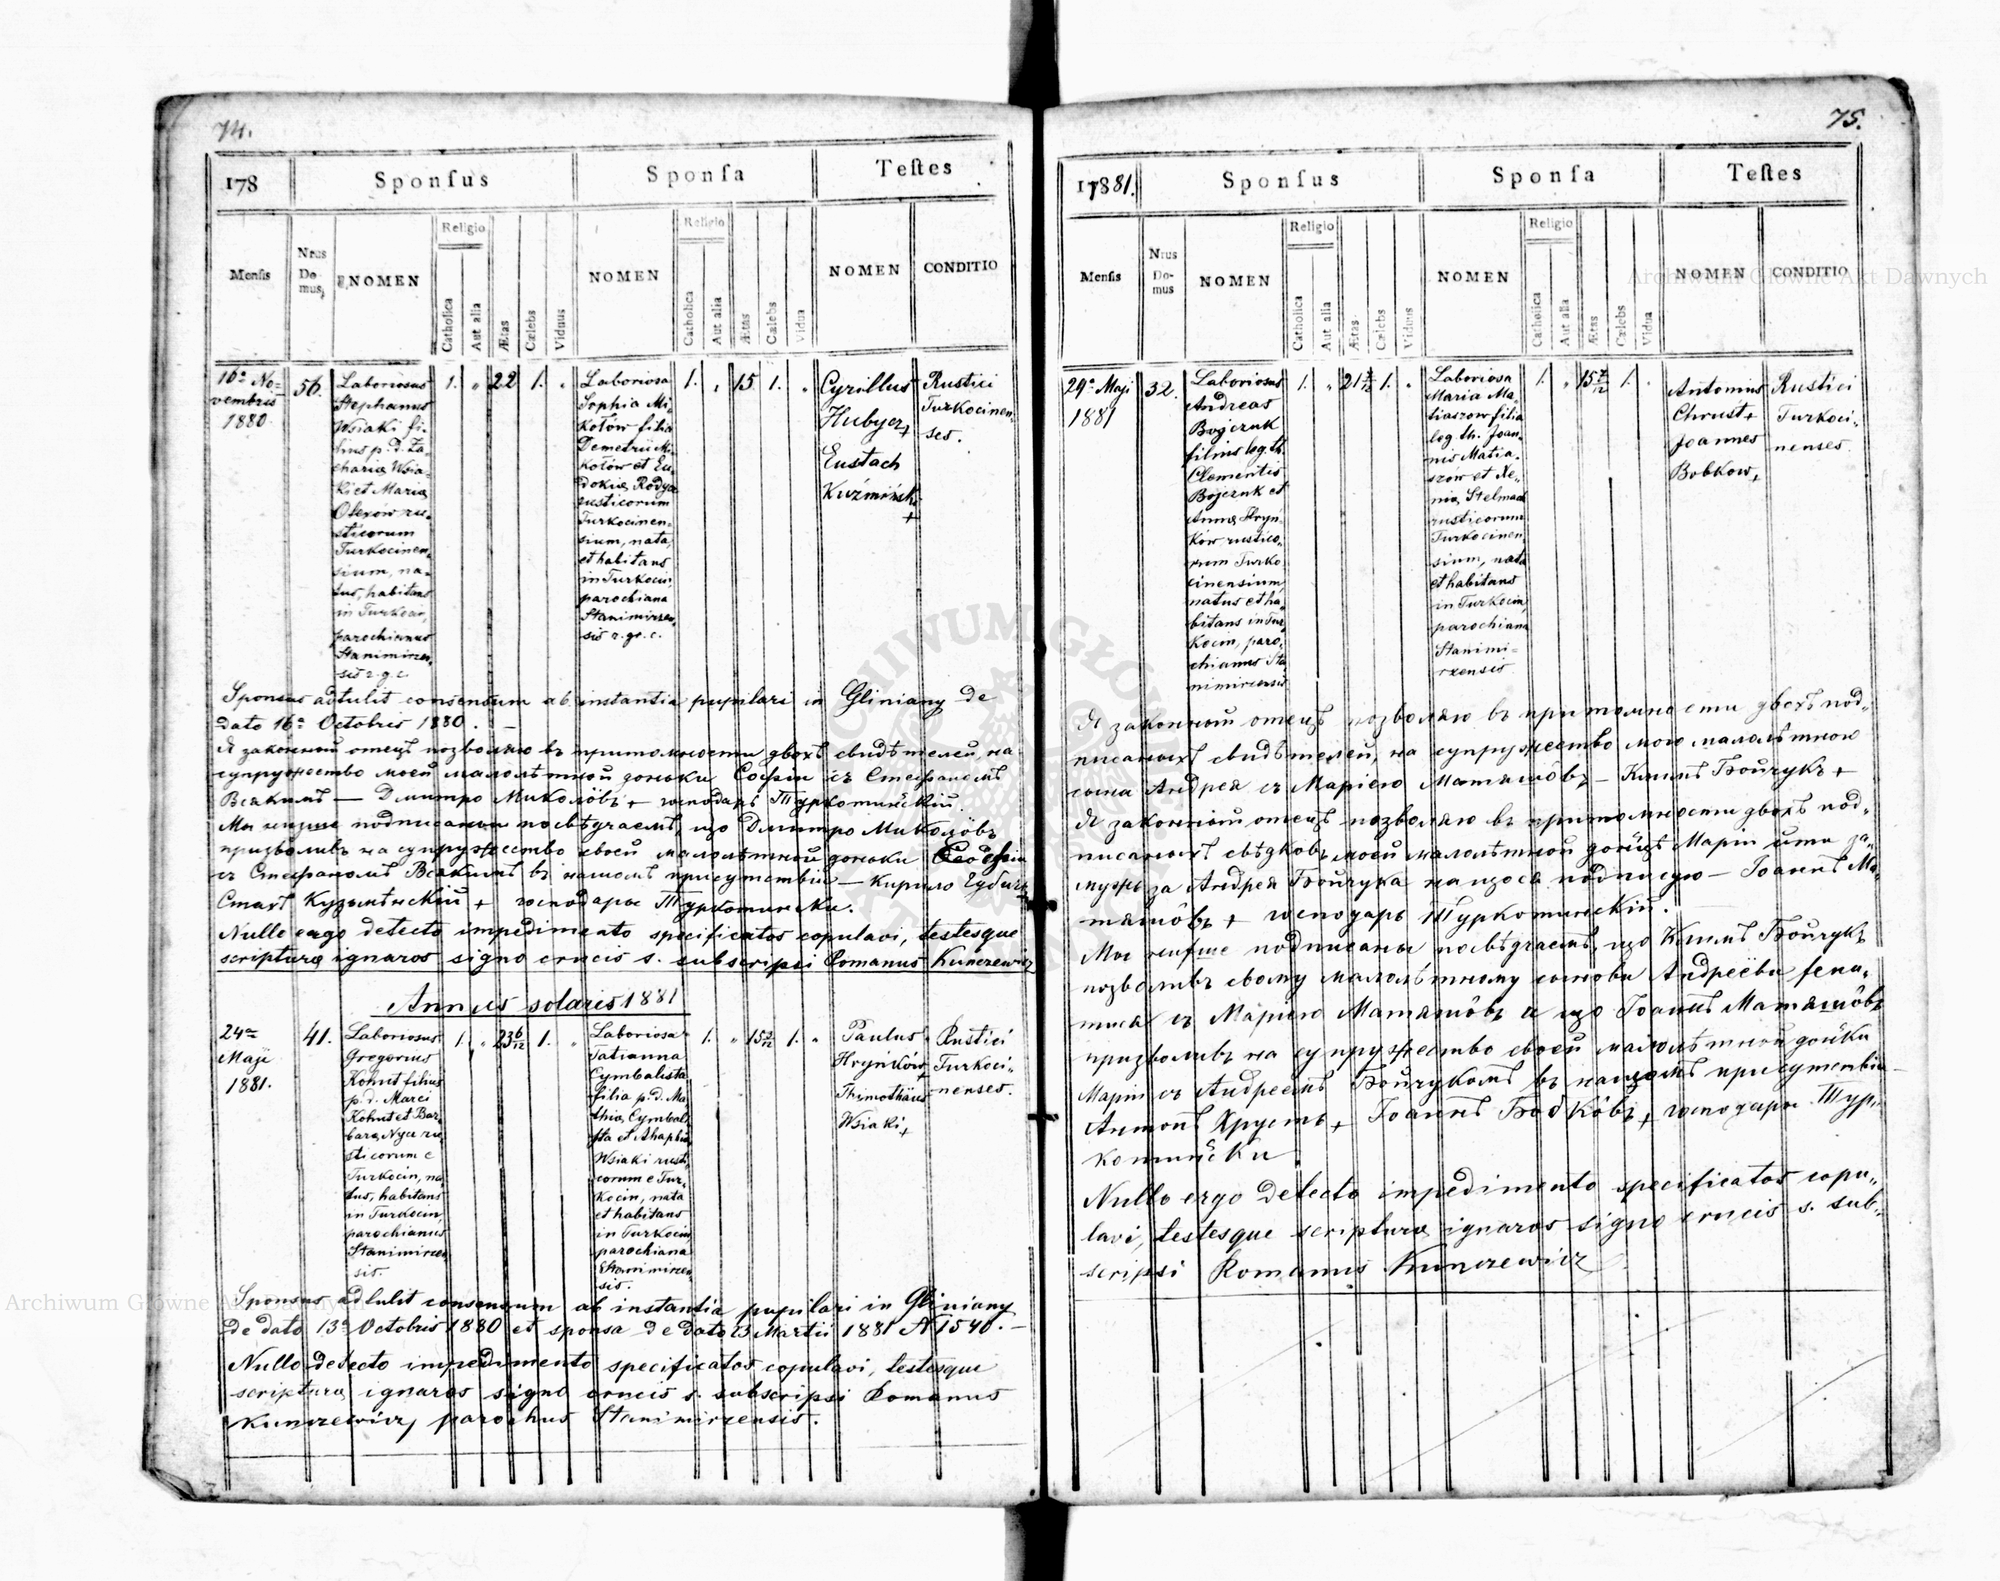 74.
178
Sponsus
Sponsa
Testes
Mensis
Nrus Domus
NOMEN
Religio
Catholica
Aut alia
Ætas
Cælebs
Viduus
NOMEN
Religio
Catholica
Aut alia
Ætas
Cælebs
Vidua
NOMEN
CONDITIO
16a No-
vembris
1880
56.
Laboriosus
Stephanus
Wsiaki fi-
lius p. d. Za-
chariæ Wsia-
ki et Mariæ
Olexów ru-
sticorum
Turkocinen-
sium, na-
tus, habitans
in Turkocin,
parochianus
Stanimirzen-
sis r. g. c.
1.
"
22
1.
"
Laboriosa
Sophia Mi-
kołów filia
Demetrii Mi-
kołów et Eu-
dokiæ Rodycz
rusticorum
Turkocinen-
sium, nata,
et habitans
in Turkocin,
parochiana
Stanimirzen-
sis r. gr. c.
1.
"
15
1.
"
Cyrillus
Hubycz+
Eustach
Kuźmiński
+
Rustici
Turkocinen-
ses.
Sponsus adtulit consensum ab instantia pupilari in Gliniany de
dato 16a Octobris 1880. —
Я законный отецъ позволяю въ притомности двохъ свидѣтелей, на
супружество моей малолѣтной доньки Софіи съ Стефаномъ
Всякимъ — Дмитро Миколôвъ + господарь Туркотиньскій.
Мы нижше подписаныи посвѣдчаемъ, що Дмитро Миколôвъ
призволивъ на супружество своей малолѣтной доньки Софіи
съ Стефаномъ Всякимъ въ нашомъ присутствіи — Кирило Губичъ
Стахъ Кузьмѣнскій + господарѣ Туркотиньски.
Nullo ergo detecto impedimento specificatos copulavi, testesque
scripturæ ignaros signo crucis s. subscripsi Romanus Kunczewicz
Annus solaris 1881
24a
Maji
1881.
41.
Laboriosus
Gregorius
Kohut filius
p. d. Marci
Kohut et Bar-
baræ Nycz ru-
sticorum e
Turkocin, na-
tus, habitans
in Turkocin,
parochianus
Stanimirzen-
sis.
1.
"
23 6/12
1.
"
Laboriosa
Tatianna
Cymbalista
filia p. d. Ma-
thiæ Cymbali-
sta et Ahaphiæ
Wsiaki rusti-
corum e Tur-
kocin, nata
et habitans
in Turkocin
parochiana
Stanimirzen-
sis.
1.
"
15 3/12
1.
"
Paulus
Hryńków+
Thimothäus
Wsiaki+
Rustici
Turkoci-
nenses.
Sponsus adtulit consensum ab instantia pupilari in Gliniany
de dato 13a Octobris 1880 et sponsa de dato 23 Martii 1881 N 1540. —
Nullo detecto impedimento specificatos copulavi, testesque
scripturæ ignaros signo crucis s. subscripsi Romanus
Kunczewicz, parochus Stanimirzensis.
75.
1881.
Sponsus
Sponsa
Testes
Mensis
Nrus Domus
NOMEN
Religio
Catholica
Aut alia
Ætas
Cælebs
Viduus
NOMEN
Religio
Catholica
Aut alia
Ætas
Cælebs
Vidua
NOMEN
CONDITIO
24a Maji
1881
32.
Laboriosus
Andreas
Bojczuk
filius leg. th.
Clementis
Bojczuk et
Annæ Hryń-
ków, rustico-
rum Turko-
cinensium,
natus et ha-
bitans in Tur-
kocin, paro-
chianus Sta-
nimirzensis
1.
"
1.
"
Laboriosa
Maria Ma-
tiaszow filia
leg. th. Joan-
nis Matia-
szów et Xe-
niæ Stelmach
rusticorum
Turkocinen-
sium, nata
et habitans
in Turkocin,
parochiana
Stanimi-
rzensis
1.
"
15 7/12
1.
"
Antonius
Chrust+
Joannes
Bobkow+
Rustici
Turkoci-
nenses.
Я законный отецъ позволяю въ притомности двохъ под-
писаныхъ свидѣтелей, на супружество мого малолѣтного
сына Андрея съ Маріею Матяшôвъ — Климъ Бойчукъ +
Я законный отецъ позволяю въ притомности двохъ под-
писаныхъ свѣдковъ моей малолѣтной доньцѣ Маріи ити за-
мужь за Андрея Бойчука на щося подписую — Іоаннъ Ма-
тяшôвъ + господарь Туркотиньскій.
Мы нижше подписаны посвѣдчаемъ, що Климъ Бойчукъ
позволивъ свому малолѣтному сынови Андреєви жени-
тися съ Маріею Матяшôвъ а що Іоаннъ Матяшôвъ
призволивъ на супружество своей малолѣтной доньки
Маріи съ Андреемъ Бойчукомъ въ нашомъ присутствіи —
Антонъ Хрустъ+ Іоаннъ Бобкôвъ+ господари Тур-
котиньски
Nullo ergo detecto impedimento specificatos copu-
lavi, testesque scripturæ ignaros signo crucis s. sub-
scripsi Romanus Kunczewicz
Archiwum Główne Akt Dawnych
Archiwum Główne Akt Dawnych